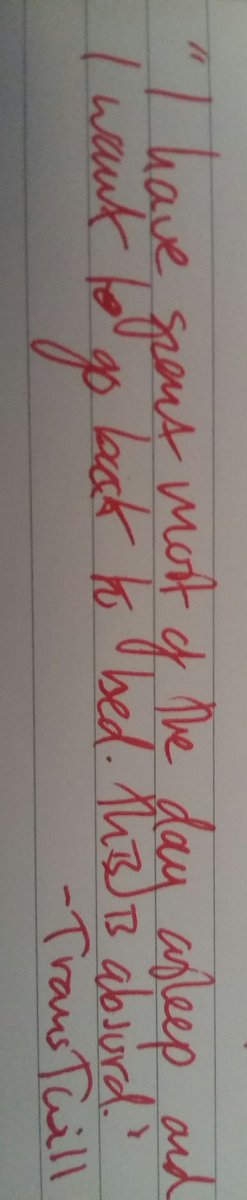 "I have spent most of the day asleep and
I want to go back to bed. This is absurd."
-TransTwill